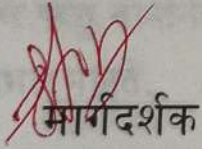 मार्गदर्शक